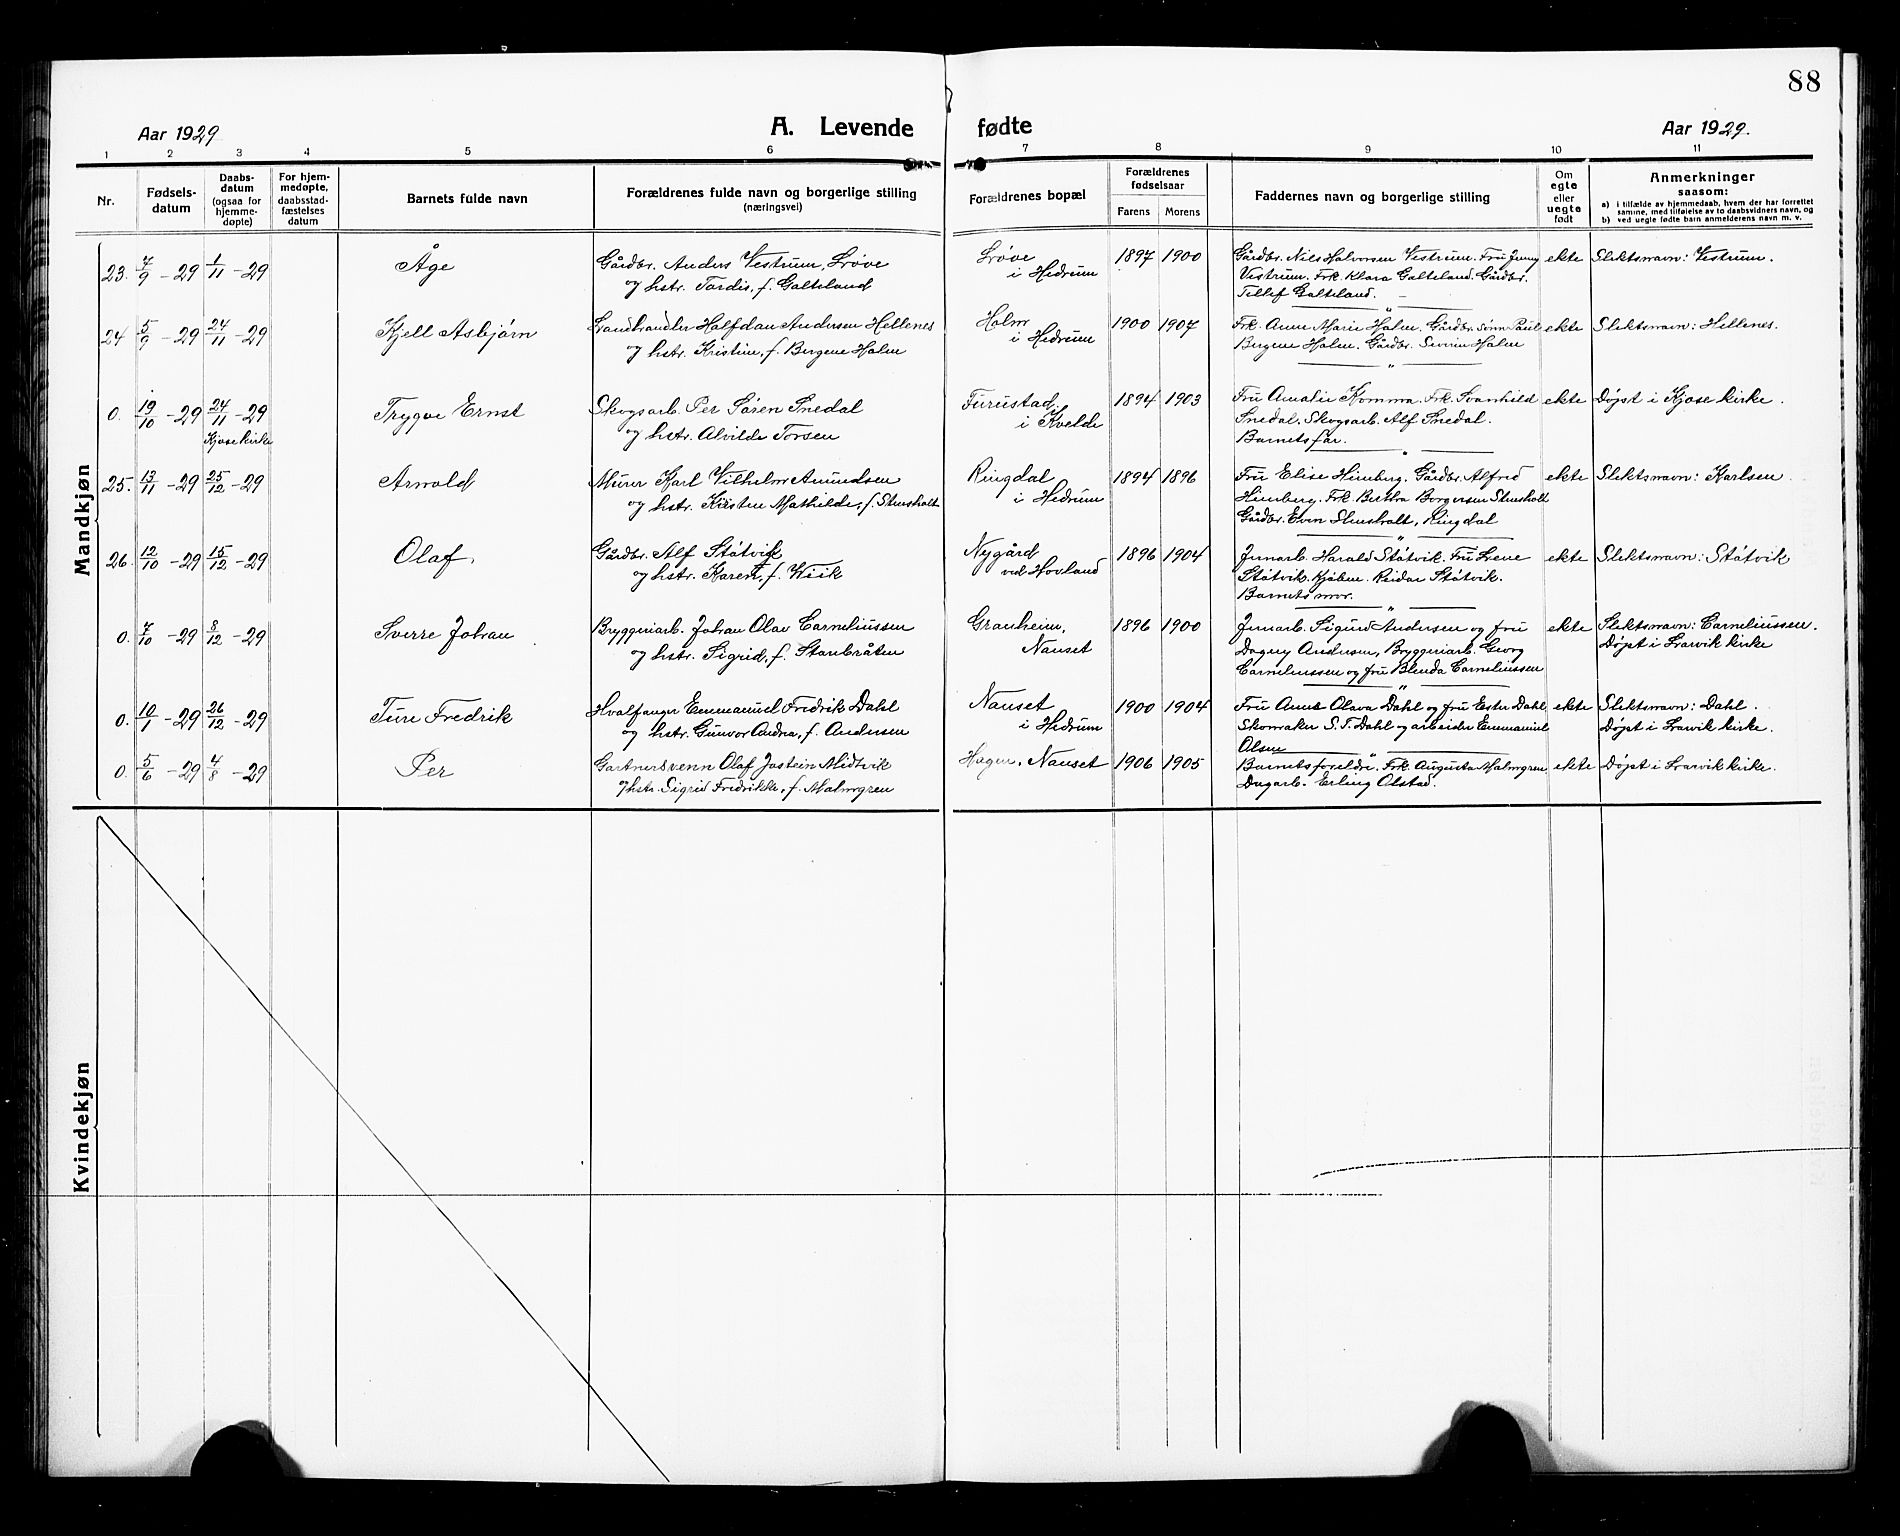 88
Aar 1929
A. Levende fødte
Aar 1929.
1 2 3 4 5 6 7 8 9 10 11
Nr.
Fødsels-
datum
Daabs-
datum
(ogsaa for
hjemme-
døpte)
For hjem-
medøpte,
daabsstad-
fæstelses
datum
Barnets fulde navn
Forældrenes fulde navn og borgerlige stilling
(næringsvei)
Forældrenes bopæl
Forældrenes
fødselsaar
Farens Morens
Faddernes navn og borgerlige stilling
Om
egte
eller
uegte
født
Anmerkninger
saasom:
a) i tilfælde av hjemmedaab, hvem der har forrettet
samme, med tilføielse av to daabsvidners navn, og
b) ved uegte fødte barn anmelderens navn m. v.
Mandkjøn
23. 7/9 - 29 1/11 - 29 Åge
Gårdbr. Anders Vestrum, Løve
og hstr. Tordis, f. Galteland
Løve
i Hedrum
1897 1900
Gårdbr. Nils Halvorsen Vestrum. Fru Jenny
Vestrum. Frk. Klara Galteland. Gårdbr.
Tellef Galteland.
ekte
Slektsnavn: Vestrum.
24 5/9 - 29 24/11 - 29 Kjell Asbjørn
Landhandler Halfdan Andersen Hellenes
og hstr. Kristine, f. Bergene Holm
Holm
i Hedrum
1900 1907
Frk. Anne Marie Holm. Gårdbr. sønn Paul
Bergene Holm. Gårdbr. Severin Holm
ekte
Slektsnavn: Hellenes.
0. 19/10 - 29 24/11 - 29
Kjose kirke
Trygve Ernst
Skogsarb. Per Søren Snedal
og hstr. Alvilde Torsen
Furustad
i Kvelde
1894 1903
Fru Amalie Komma. Frk. Svanhild
Snedal. Skogsarb. Alf Snedal.
Barnets far.
ekte
Døpt i Kjose kirke.
25. 13/11 - 29 25/12 - 29 Arnold
Murer Karl Vilhelm Amundsen
og hstr. Kirsten Mathilde, f. Stensholt
Ringdal
i Hedrum
1894 1896
Fru Elise Himberg. Gårdbr. Alfred
Himberg. Frk. Bertha Borgersen Stensholt
Gårdbr. Even Stensholt, Ringdal
ekte
Slektsnavn: Karlsen
26. 12/10 - 29 15/12 - 29 Olaf.
Gårdbr. Alf Støtvik
og hstr. Karen, f. Wiik
Nygård
ved Hovland
1896 1904
Jernarb. Harald Støtvik. Fru Lene
Støtvik. Kjøbm. Reidar Støtvik.
Barnets mor.
ekte
Slektsnavn: Støtvik
0. 7/10 - 29 8/12 - 29 Sverre Johan
Bryggeriarb. Johan Olav Corneliussen
og hstr. Sigrid, f. Stanbråten
Granheim,
Nanset
1896 1900
Jernarb. Sigurd Andersen og fru
Dagny Andersen, Bryggeriarb. Georg
Corneliussen og fru Blenda Corneliussen
ekte
Slektsnavn: Corneliussen.
Døpt i Larvik kirke
0. - 29 26/12 - 29 Ture Fredrik
Hvalfanger Emmanuel Fredrik Dahl
og hstr. Gunvor Andrea, f. Andersen
Nanset
i Hedrum
1900 1904
Fru Anne Olava Dahl og fru Ester Dahl,
Skomaker S. F. Dahl og arbeider Emmanuel
Olsen
ekte
Slektsnavn: Dahl.
Døpt i Larvik kirke.
0. 5/6 - 29 4/8 - 29 Per
Gartnersvenn Olaf Jostein Midtvik
og hstr. Sigrid Fredrikke, f. Malmgren
Hagen, Nanset
1906 1905
Barnets foreldre. Frk. Augusta Malmgren
Dagarb. Erling Olstad.
ekte
Døpt i Larvik kirke.
Kvindekjøn